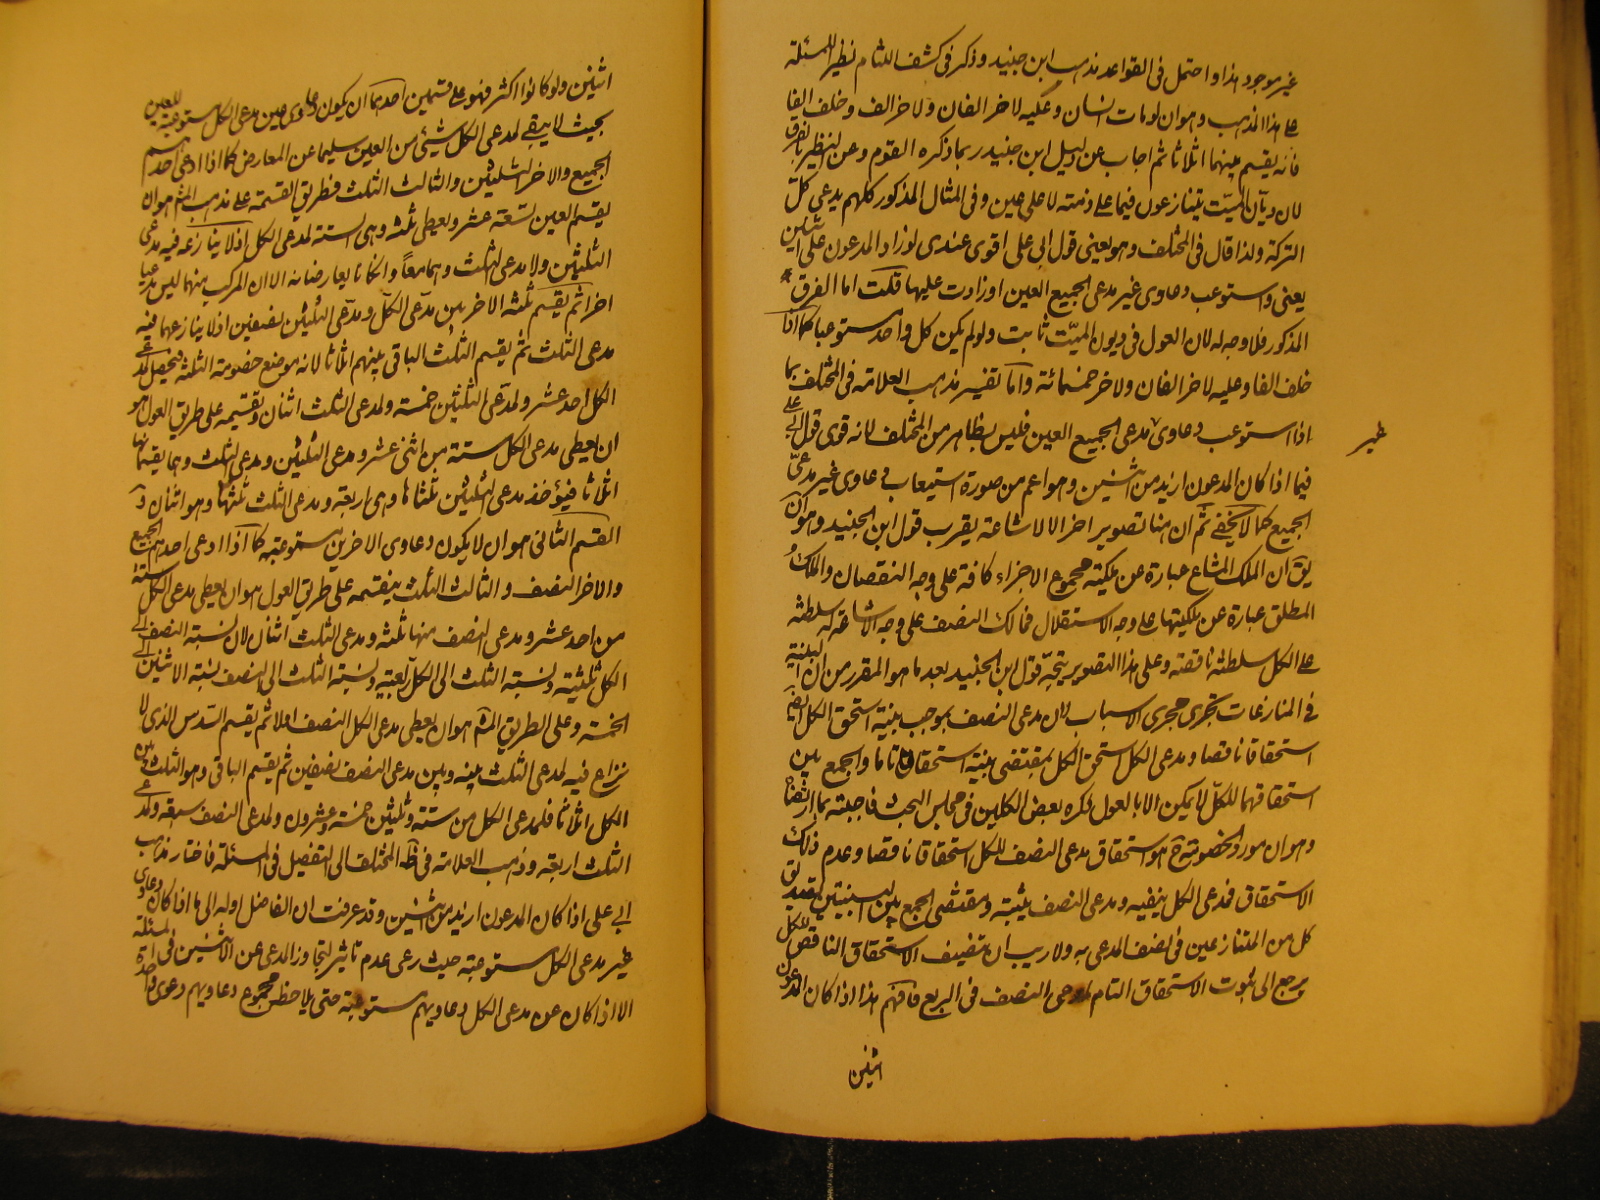 غير موجود هذا واحتمل فى القواعد مذهب ابن جنيد وذكر فى كشف اللثام نظير المسئلة
على هذا المذهب وهو ان لو مات انسان وعليه لاخر الفان ولاخر الف وخلف الفا
فانه يقسم بينهما اثلاثا ثم اجاب عن دليل ابن جنيد بما ذكره القوم وعن النظير بالفرق
لان ديان الميت يتنازعون فيما على ذمته لا على عين وفى المثال المذكور كلهم يدعى كل
التركة ولذا قال فى المختلف وهو يعنى قول ابى على اقوى عندى لو زاد المدعون على اثنين
يعنى واستوعب دعاوى غير مدعى الجميع العين او زادت عليها قلت اما الفرق
المذكور فلا وجه له لان العول فى ديون الميت ثابت ولو لم يكن كل واحد مستوعبا كما اذا
خلف الفا وعليه لاخر الفان ولاخر خمسمائة واما تفسير مذهب العلامة فى المختلف بما
اذا استوعب دعاوى مدعى الجميع العين فليس بظاهر من المختلف لانه قوى قول ابى على
غير
فيما اذا كان المدعون ازيد من اثنين وهو اعم من صورة استيعاب دعاوى غير مدعى
الجميع كما لا يخفى ثم ان هنا تصوير اخر الا لاشاعة يقرب قول ابن الجنيد وهو ان
يق ان الملك المشاع عبارة عن ملكية مجموع الاجزاء كافة على وجه النقصان والملك
المطلق عبارة عن ملكيتها على وجه الاستقلال فمالك النصف على وجه الاشاعة له سلطنة
على الكل سلطنة ناقصة وعلى هذا التصوير يتجه قول ابن الجنيد بعد ما هو المقرر من ان البينة
فى المنازعات تجرى مجرى الاسباب لان مدعى النصف بموجب بينة استحق الكل ايضا
استحقاقا ناقصا ومدعى الكل استحق الكل بمقتضى بينة استحقاقا تاما والجمع بين
استحقاقهما للكل لا يمكن الا بالعول ذكره بعض الكلين فى مجلس البحث فاجبته بما ارتضاه
وهو ان مورد الخصومة ح هو استحقاق مدعى النصف للكل استحقاقا ناقصا وعدم ذلك
الاستحقاق فمدعى الكل ينفيه ومدعى النصف يثبته ومقتضى الجمع بين البينتين تصديق
كل من المتنازعين فى نصف المدعى به ولا ريب ان تنصيف الاستحقاق الناقص للكل
يرجع الى ثبوت الاستحقاق التام لمدعى النصف فى الربع فافهم هذا اذا كان المدعون
اثنين
اثنين ولو كانوا اكثر فهو على قسمين احدهما ان يكون دعاوى غير مدعى الكل مستوعبة للعين
بحيث لا يبقى لمدعى الكل شيئ من العين سليما عن المعارض كما اذا ادعى احدهم
الجميع والاخر الثلثين والثالث الثلث فطريق القسمة على مذهب المش هو ان
يقسم العين تسعة عشر ويعطى ثلثه وهى الستة لمدعى الكل اذ لا ينازعه فيه مدعى
الثلثين ولا مدعى الثلث وهما معا وان كانا يعارضانه الا ان المركب منهما ليس مدعيا
اخر ثم يقسم ثلثه الاخر بين مدعى الكل ومدعى الثلثين نصفين اذ لا ينازعهما فيه
مدعى الثلث ثم يقسم الثلث الباقى بينهم اثلاثا لانه موضع خصومة الثلثة فيحصل لمدعى
الكل احد عشر ولمدعى الثلثين خمسة ولمدعى الثلث اثنان وتقسيمه على طريق العول هو
ان يعطى مدعى الكل ستة من اثنى عشر ومدعى الثلثين ومدعى الثلث وهما يقتسمانها
اثلاثا فيؤخذ مدعى الثلثين ثلثاها وهى اربعة ومدعى الثلث ثلثها وهو اثنان و
القسم الثانى هو ان لا يكون دعاوى الاخرين مستوعبة كما اذا ادعى احدهم الجميع
والاخر النصف والثالث الثلث فيقسمه على طريق العول هو ان يعطى مدعى الكل ستة
من احد عشر ومدعى النصف منها ثلثة ومدعى الثلث اثنان لان نسبة النصف الى
الكل ونسبة الثلث الى الكل ونسبة الثلث الى النصف نسبة الاثنين الى
وعلى الطريق المش هو ان يعطى مدعى الكل النصف اولا ثم يقسم السدس الذى لا
نزاع فيه لمدعى الثلث بينه وبين مدعى النصف نصفين ثم يقسم الباقى وهو الثلث بين
الكل اثلاثا فلمدعى الكل من ستة وثلثين خمسة وعشرون ولمدعى النصف سبعة ولمدعى
الثلث اربعة وذهب العلامة فى ظه المختلف الى التفصيل فى المسئلة فاختار مذهب
ابى على اذا كان المدعون ازيد من اثنين وقد عرفت ان الفاضل اوله الى ما اذا كان دعاوى
غير مدعى الكل مستوعبة حيث رعى عدم تاثير لتجاوز المدعى عن الاثنين فى المسئلة
الا اذا كان عن مدعى الكل دعاويهم مستوعبة حتى يلاحظ مجموع دعاويهم دعوى واحدة